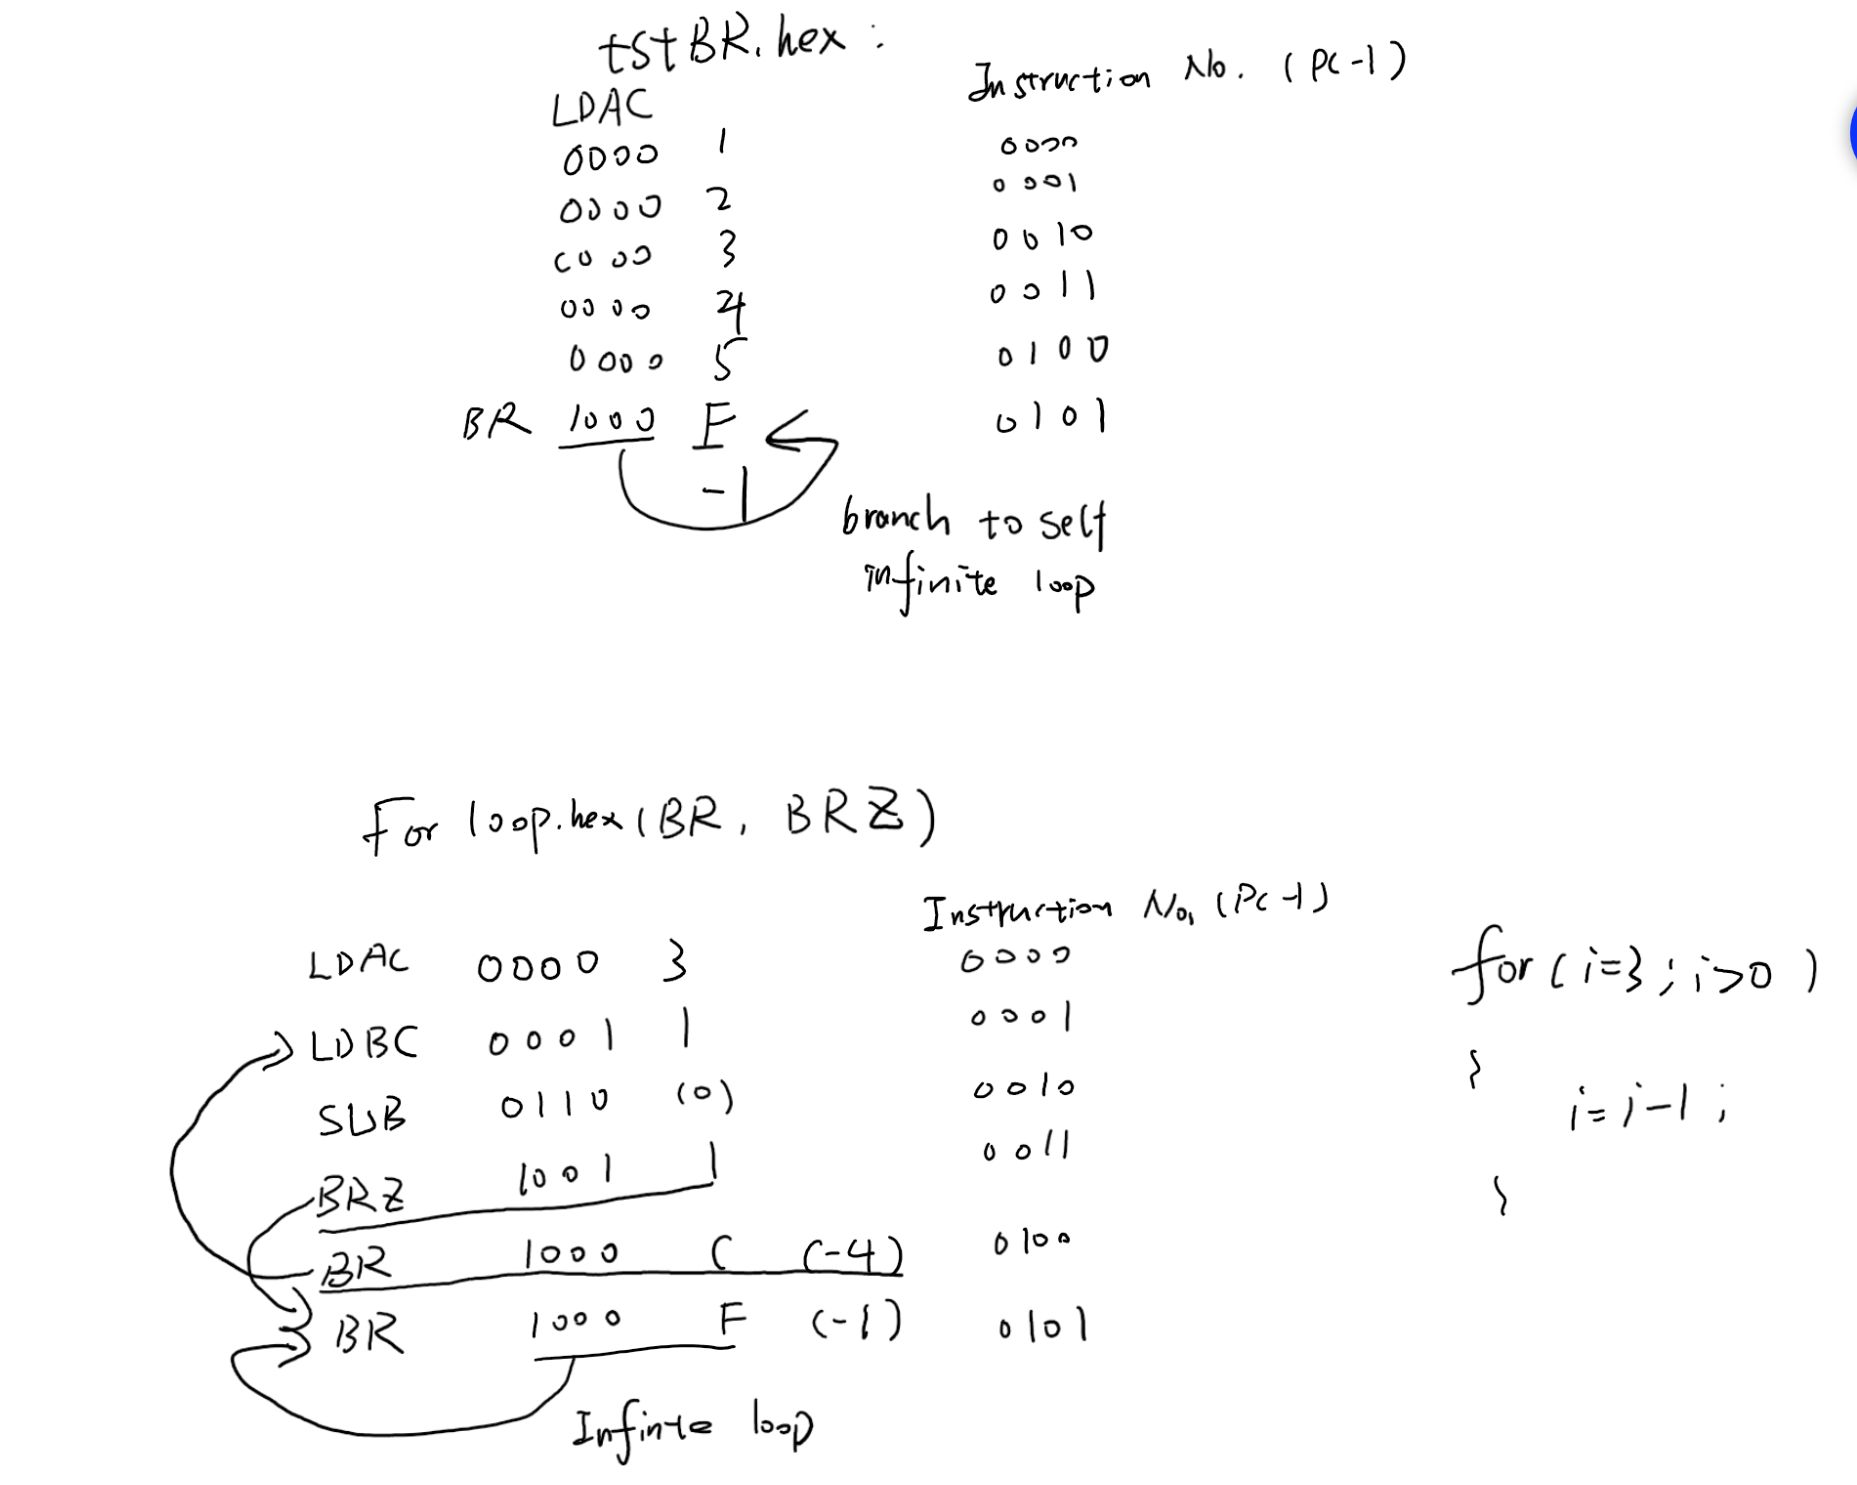 tstBR.hex :
Instruction No. (PC-1)
LDAC
0000 1 0000
0000 2 0001
0000 3 0010
0000 4 0011
0000 5 0100
BR 1000 F 0101
-1
branch to self
infinite loop
For loop.hex (BR, BRZ)
Instruction No, (PC-1)
LDAC 0000 3 0000
LDBC 0001 1 0001
SUB 0110 (0) 0010
BRZ 1001 1 0011
BR 1000 C (-4) 0100
BR 1000 F (-1) 0101
Infinte loop
for (i=3; i>0 )
{
i=i-1;
}